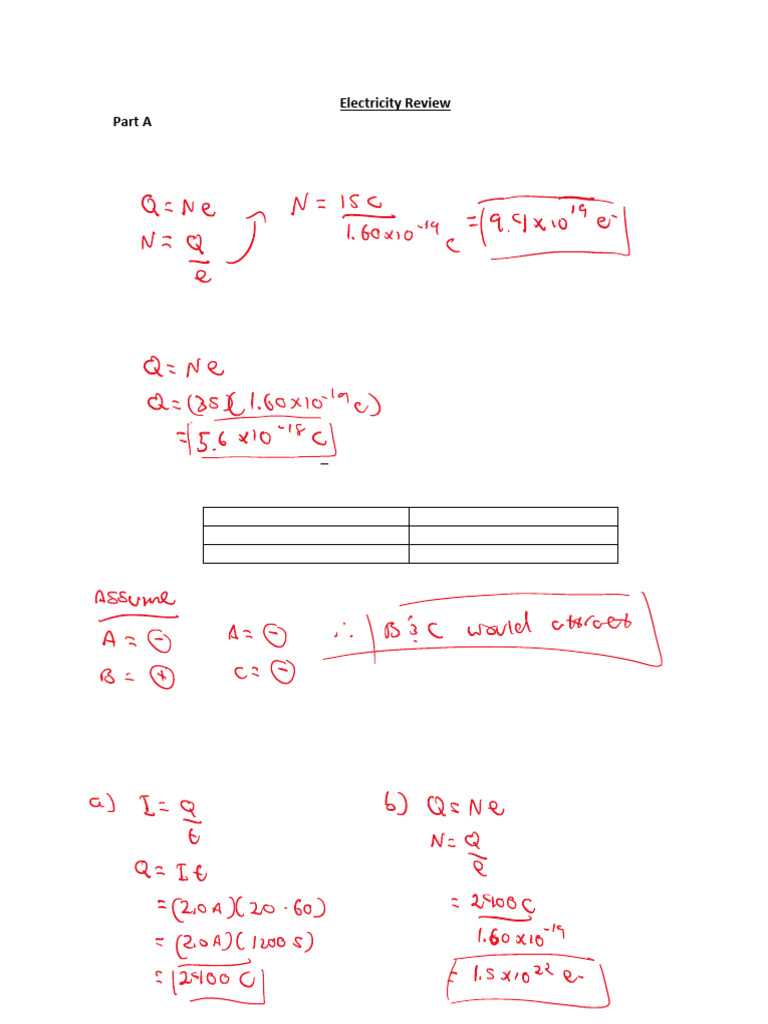 Electricity Review
Part A
Q = Ne
N = Q/e
N = 15C / 1.60x10^-19 C = 9.4x10^19 e-
Q = Ne
Q = (35)(1.60x10^-19 C)
= 5.6x10^-18 C
Assume
A = (-) A = (-) ∴ B & C would attract
B = (+) C = (-)
a) I = Q/t
Q = It
= (2.0A)(20·60)
= (2.0A)(1200s)
= 2400 C
b) Q = Ne
N = Q/e
= 2400C / 1.60x10^-19
= 1.5x10^22 e-